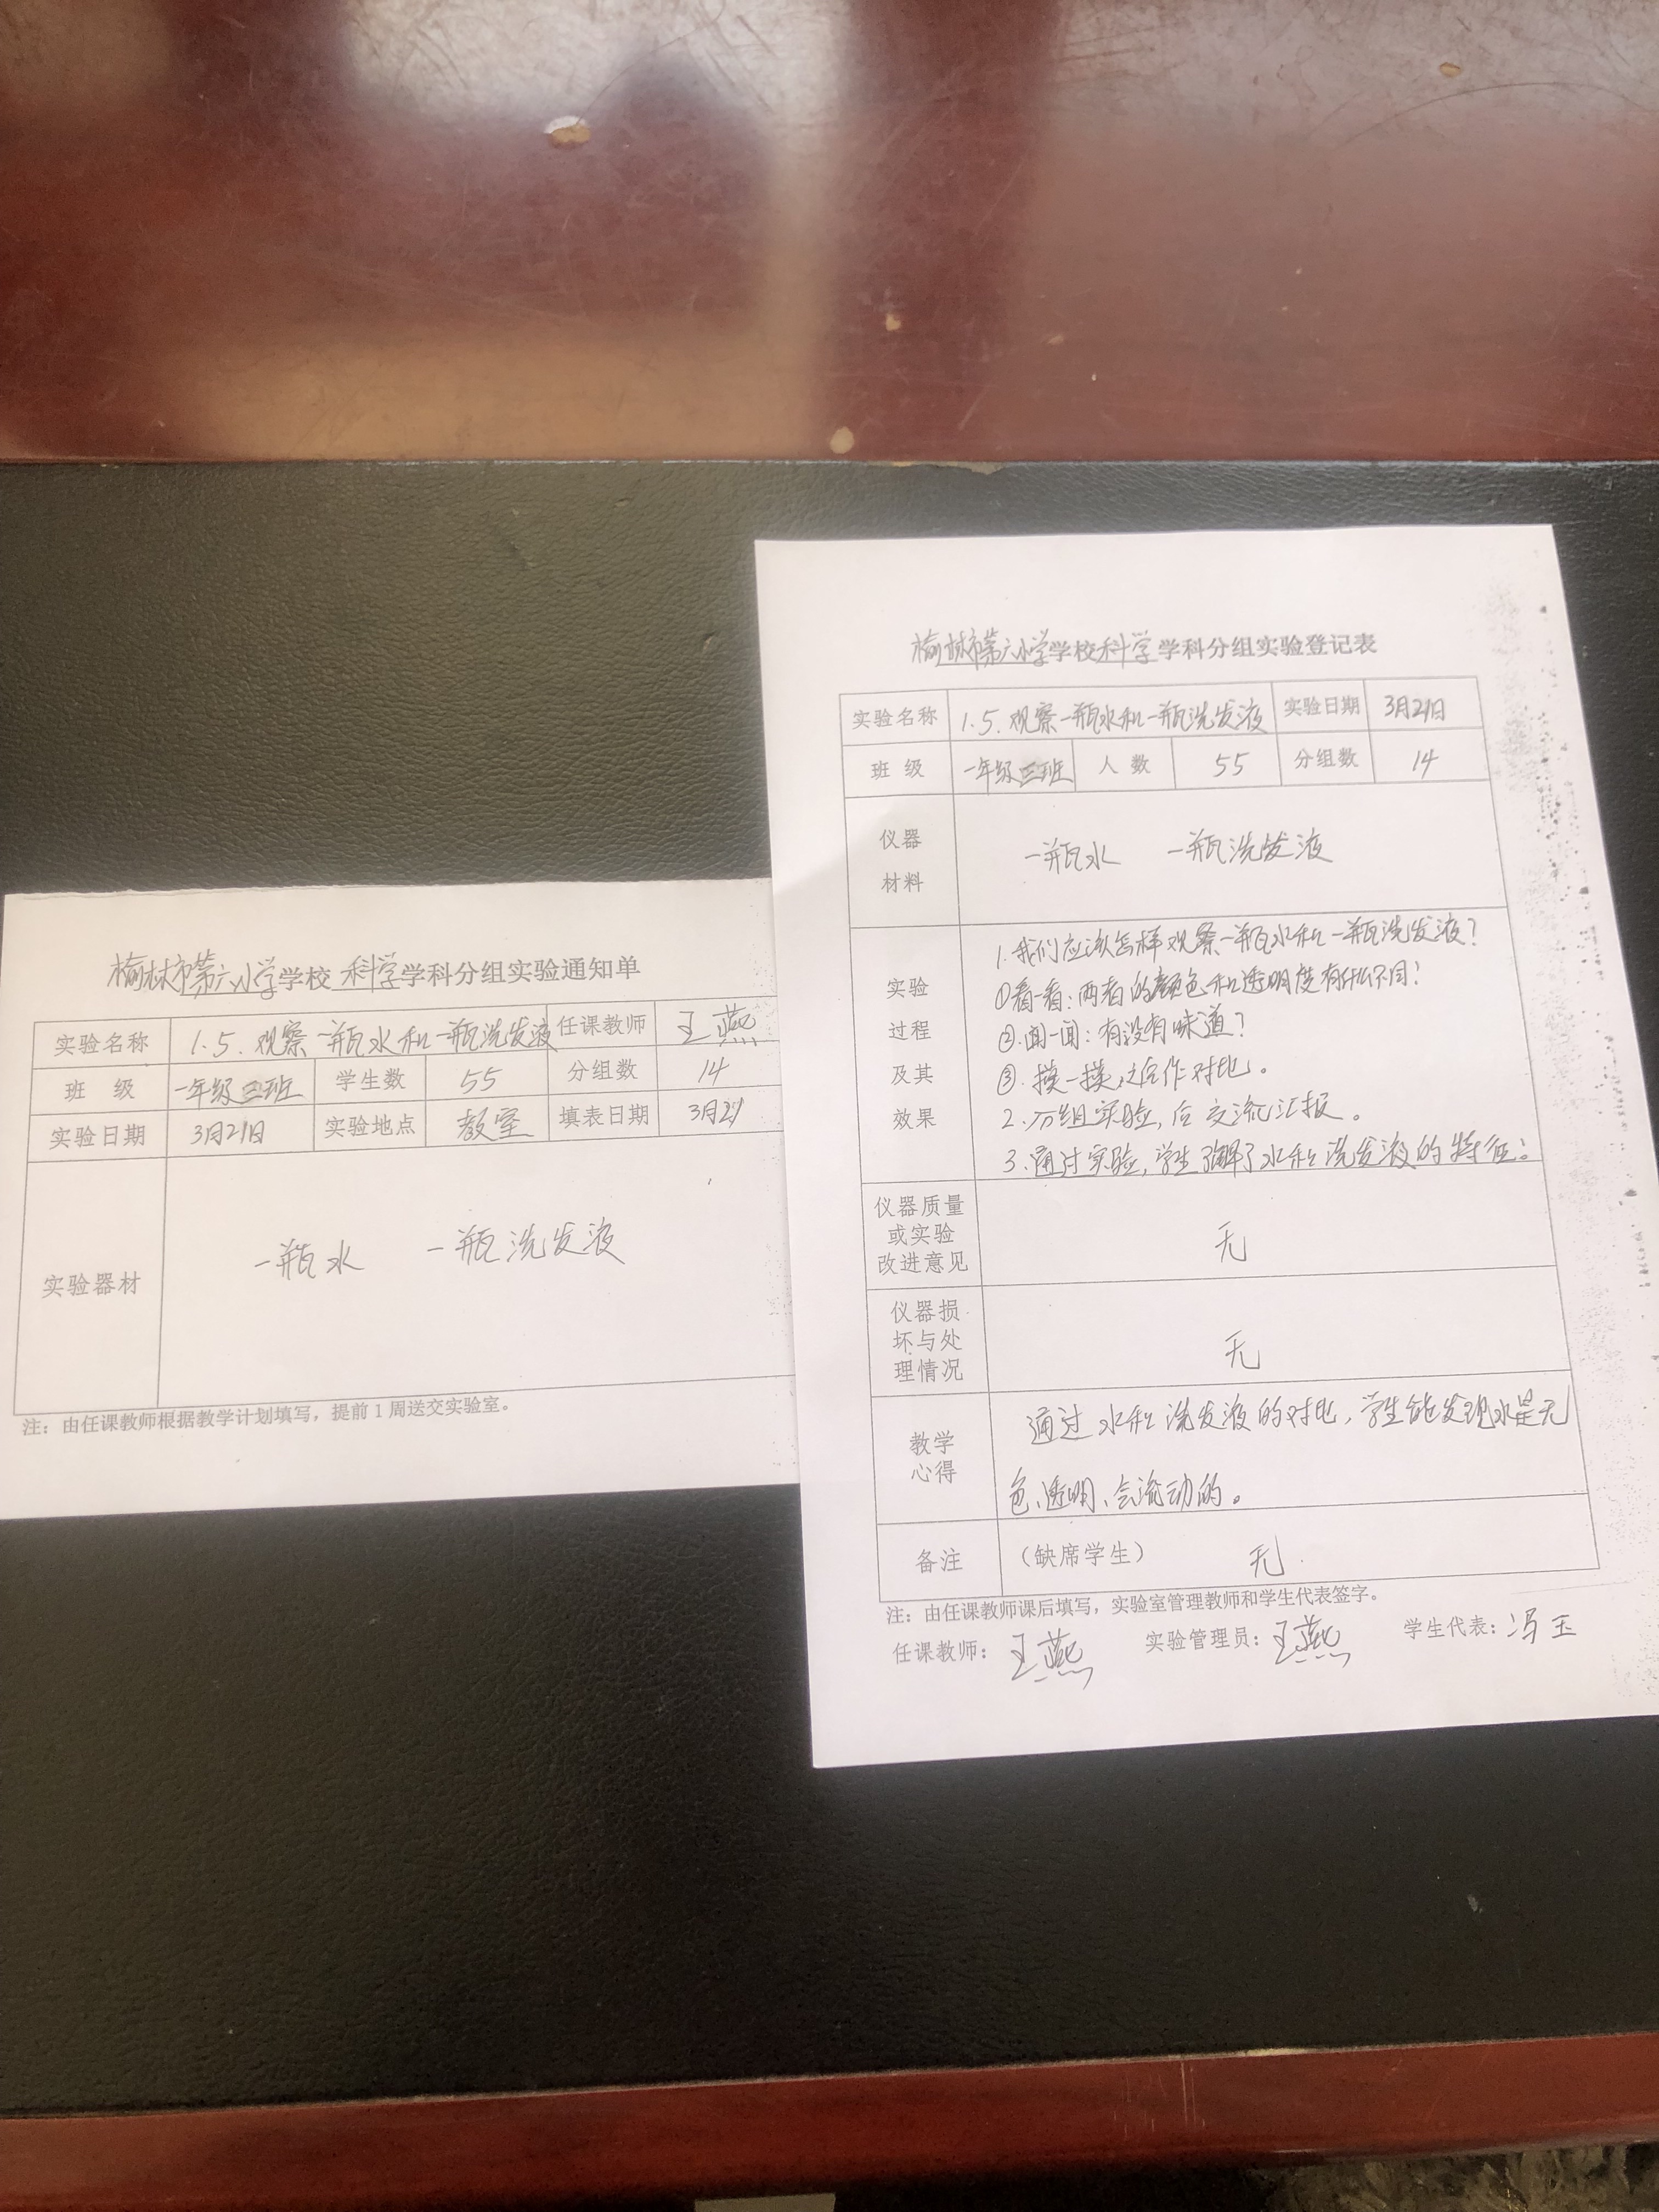 榆林市第六小学学校 科学学科分组实验通知单
实验名称 1.5.观察一瓶水和一瓶洗发液 任课教师 王燕
班 级 一年级三班 学生数 55 分组数 14
实验日期 3月21日 实验地点 教室 填表日期 3月21
实验器材 一瓶水 一瓶洗发液
注：由任课教师根据教学计划填写，提前1周送交实验室。
榆林市第六小学学校科学学科分组实验登记表
实验名称 1.5.观察一瓶水和一瓶洗发液 实验日期 3月21日
班 级 一年级三班 人 数 55 分组数 14
仪器
材料
一瓶水 一瓶洗发液
实验
过程
及其
效果
1.我们应该怎样观察一瓶水和一瓶洗发液？
①看一看：两者的颜色和透明度有什么不同？
②.闻一闻：有没有味道？
③.摸一摸，之后作对比。
2.分组实验，后交流汇报。
3.通过实验，学生了解了水和洗发液的特征。
仪器质量
或实验
改进意见
无
仪器损
坏与处
理情况
无
教学
心得
通过水和洗发液的对比，学生能发现水是无
色、透明、会流动的。
备注 （缺席学生） 无
注：由任课教师课后填写，实验室管理教师和学生代表签字。
任课教师：王燕 实验管理员：王燕 学生代表：冯玉